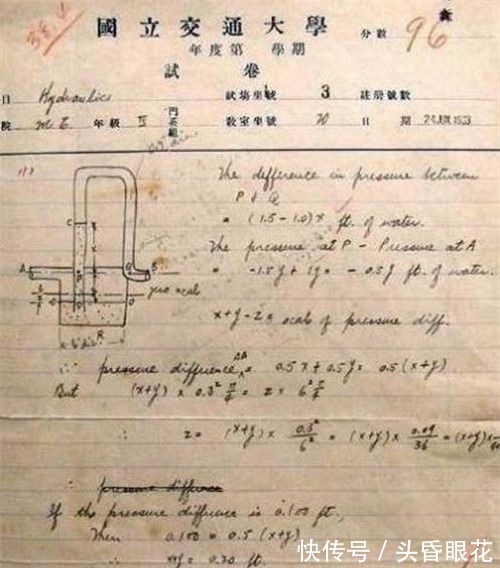 國立交通大學
分數 96
年度第 學期
試卷
目 Hydraulics 試場坐號 3 註冊號數
院 M.E. 年級 IV 門系組 教室坐號 70 日期 24 JUN 1933
(1)
The difference in pressure between
P & Q
= (1.5 - 1.0)x ft. of water.
The pressure at P - Pressure at A
= -1.5y + 1y = -0.5y ft. of water.
x+y-z = scale of pressure diff.
C
A
B
zero scale
R
∴ pressure difference = 0.5x + 0.5y = 0.5(x+y)
But (x+y) × 0.3² π/4 = z × 6² π/4
∴ z = (x+y) × 0.3²/6² = (x+y) × 0.09/36 = (x+y) ×
∴ pressure difference
If the pressure difference is 0.100 ft,
Then 0.100 = 0.5(x+y)
∴ x+y = 0.20 ft.
快传号/头昏眼花